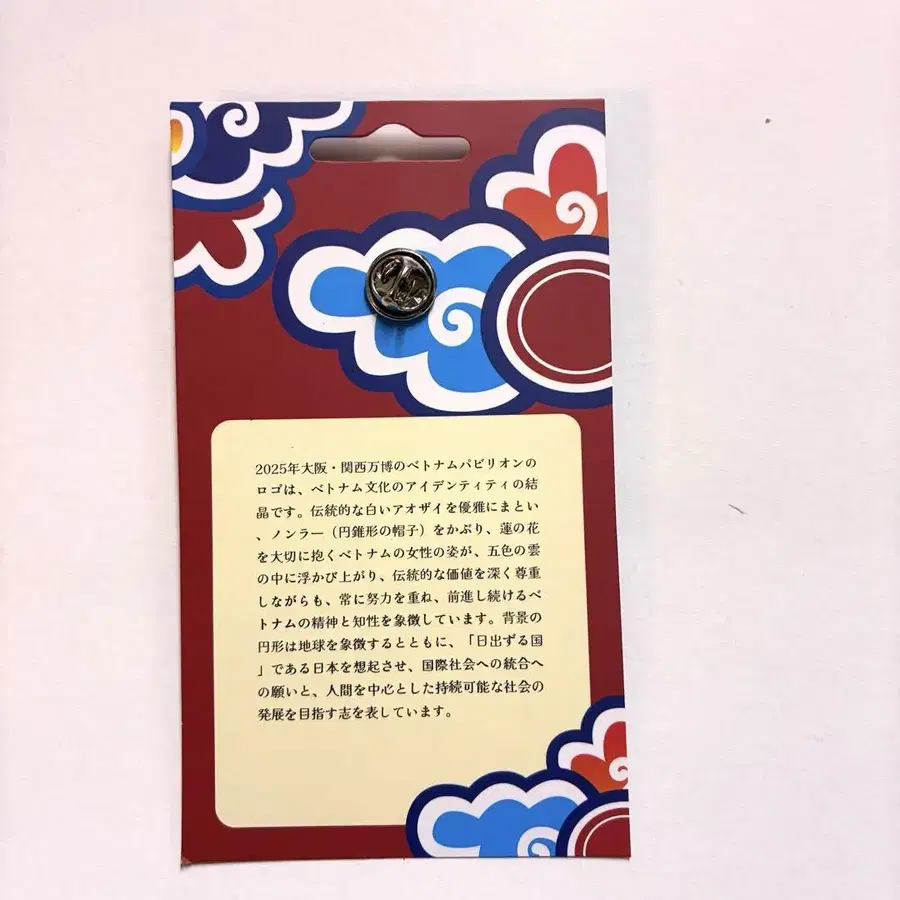 2025年大阪・関西万博のベトナムパビリオンの
ロゴは、ベトナム文化のアイデンティティの結
晶です。伝統的な白いアオザイを優雅にまとい
、ノンラー（円錐形の帽子）をかぶり、蓮の花
を大切に抱くベトナムの女性の姿が、五色の雲
の中に浮かび上がり、伝統的な価値を深く尊重
しながらも、常に努力を重ね、前進し続けるベ
トナムの精神と知性を象徴しています。背景の
円形は地球を象徴するとともに、「日出ずる国
」である日本を想起させ、国際社会への統合へ
の願いと、人間を中心とした持続可能な社会の
発展を目指す志を表しています。